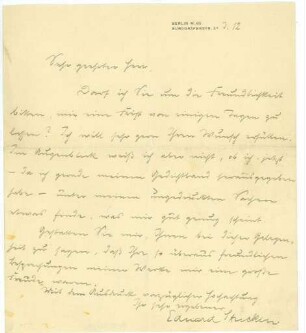 BERLIN W. 62.
BURGGRAFENSTR. 2A 7. 12
Sehr geehrter Herr.
Darf ich Sie um die Freundlichkeit
bitten, mir eine Frist von einigen Tagen zu
lassen? Ich will sehr gern Ihren Wunsch erfüllen.
Im Augenblick weiß ich aber nicht, ob ich jetzt
– da ich gerade meinen Gedichtband herausgegeben
habe – unter meinen ungedruckten Sachen
etwas finde, was mir gut genug scheint
Gestatten Sie mir, Ihnen bei dieser Gelegen-
heit zu sagen, daß Ihre so überaus freundlichen
Besprechungen meiner Werke mir eine große
Freude waren.
Mit dem Ausdruck vorzüglicher Hochachtung
Ihr sehr ergebener
Eduard Stucken